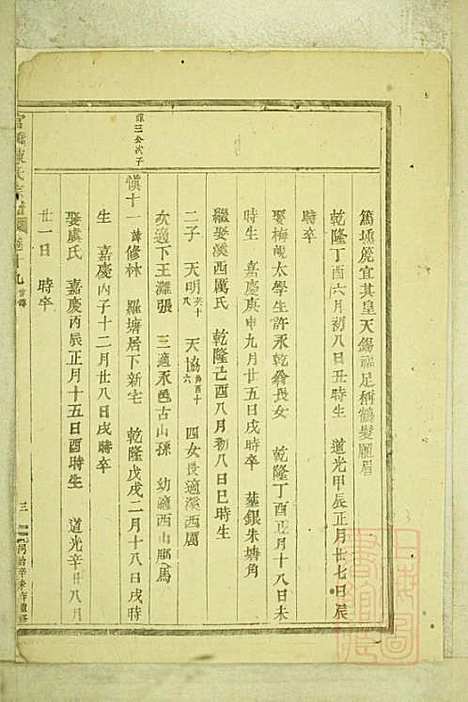 篤壎篪宜其皇天錫祉足稱鶴髮龎眉
乾隆丁酉六月初八日丑時生 道光甲辰正月廿七日辰
時卒
娶梅峴太學生許永乾翁長女 乾隆丁酉十一月十八日未
時生 嘉慶庚申九月廿五日戌時卒 墓銀朱塘角
繼娶溪西厲氏 乾隆己酉八月初八日巳時生
二子 天明 天協 四女長適溪西厲
次適下王灘張 三適永邑古山孫 幼適西山馬
愼三公次子
愼十一諱修林 羅塘居下新宅 乾隆戊戌二月十八日戌時
生 嘉慶丙子十二月廿八日戌時卒
娶虞氏 嘉慶丙辰正月十五日酉時生 道光辛丑八月
廿一日 時卒
陳氏宗譜 卷十九 三 同治辛未年重修